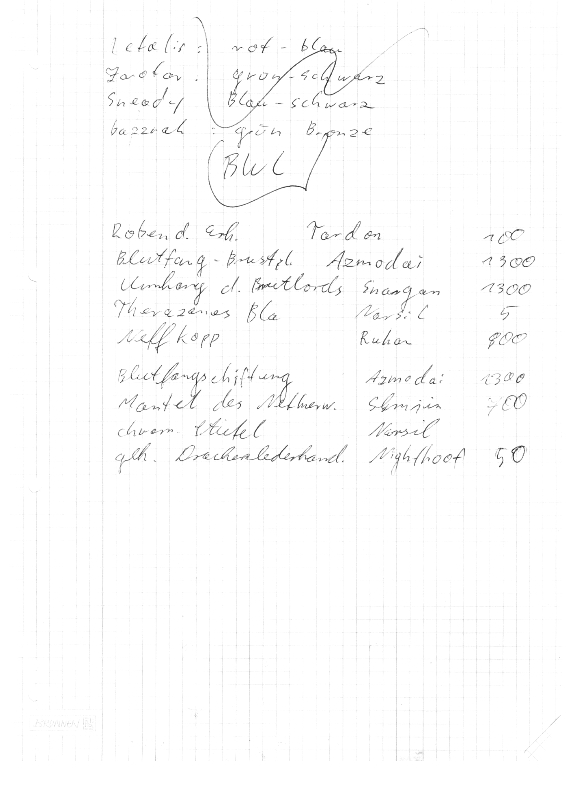 Ictalis : rot - blau
Zardor : grün - schwarz
Sneady Blau - schwarz
bazzrah : grün Bronze
BWL
Roben d. Erh. Tardon 100
Blutfang - Brustpl. Azmodai 1300
Umhang d. Brutlords Snargan 1300
Therazanes Narsil 5
Neffkopp Ruhar 800
Blutfangschiftung Azmodai 1300
Mantel des Netherw. 700
chrom. Stiefel Narsil
glh. Drachenlederhand. Nighthoof 50